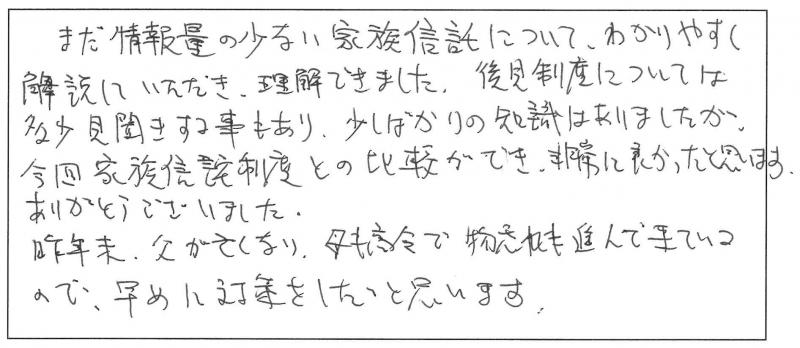 まだ情報量の少ない家族信託について、わかりやすく
解説していただき、理解できました。後見制度については
多少見聞きする事もあり、少しばかりの知識はありましたが、
今回家族信託制度との比較ができ、非常に良かったと思います。
ありがとうございました。
昨年末、父が亡くなり、母も高令で物忘れも進んで来ている
ので、早めに対策をしたいと思います。